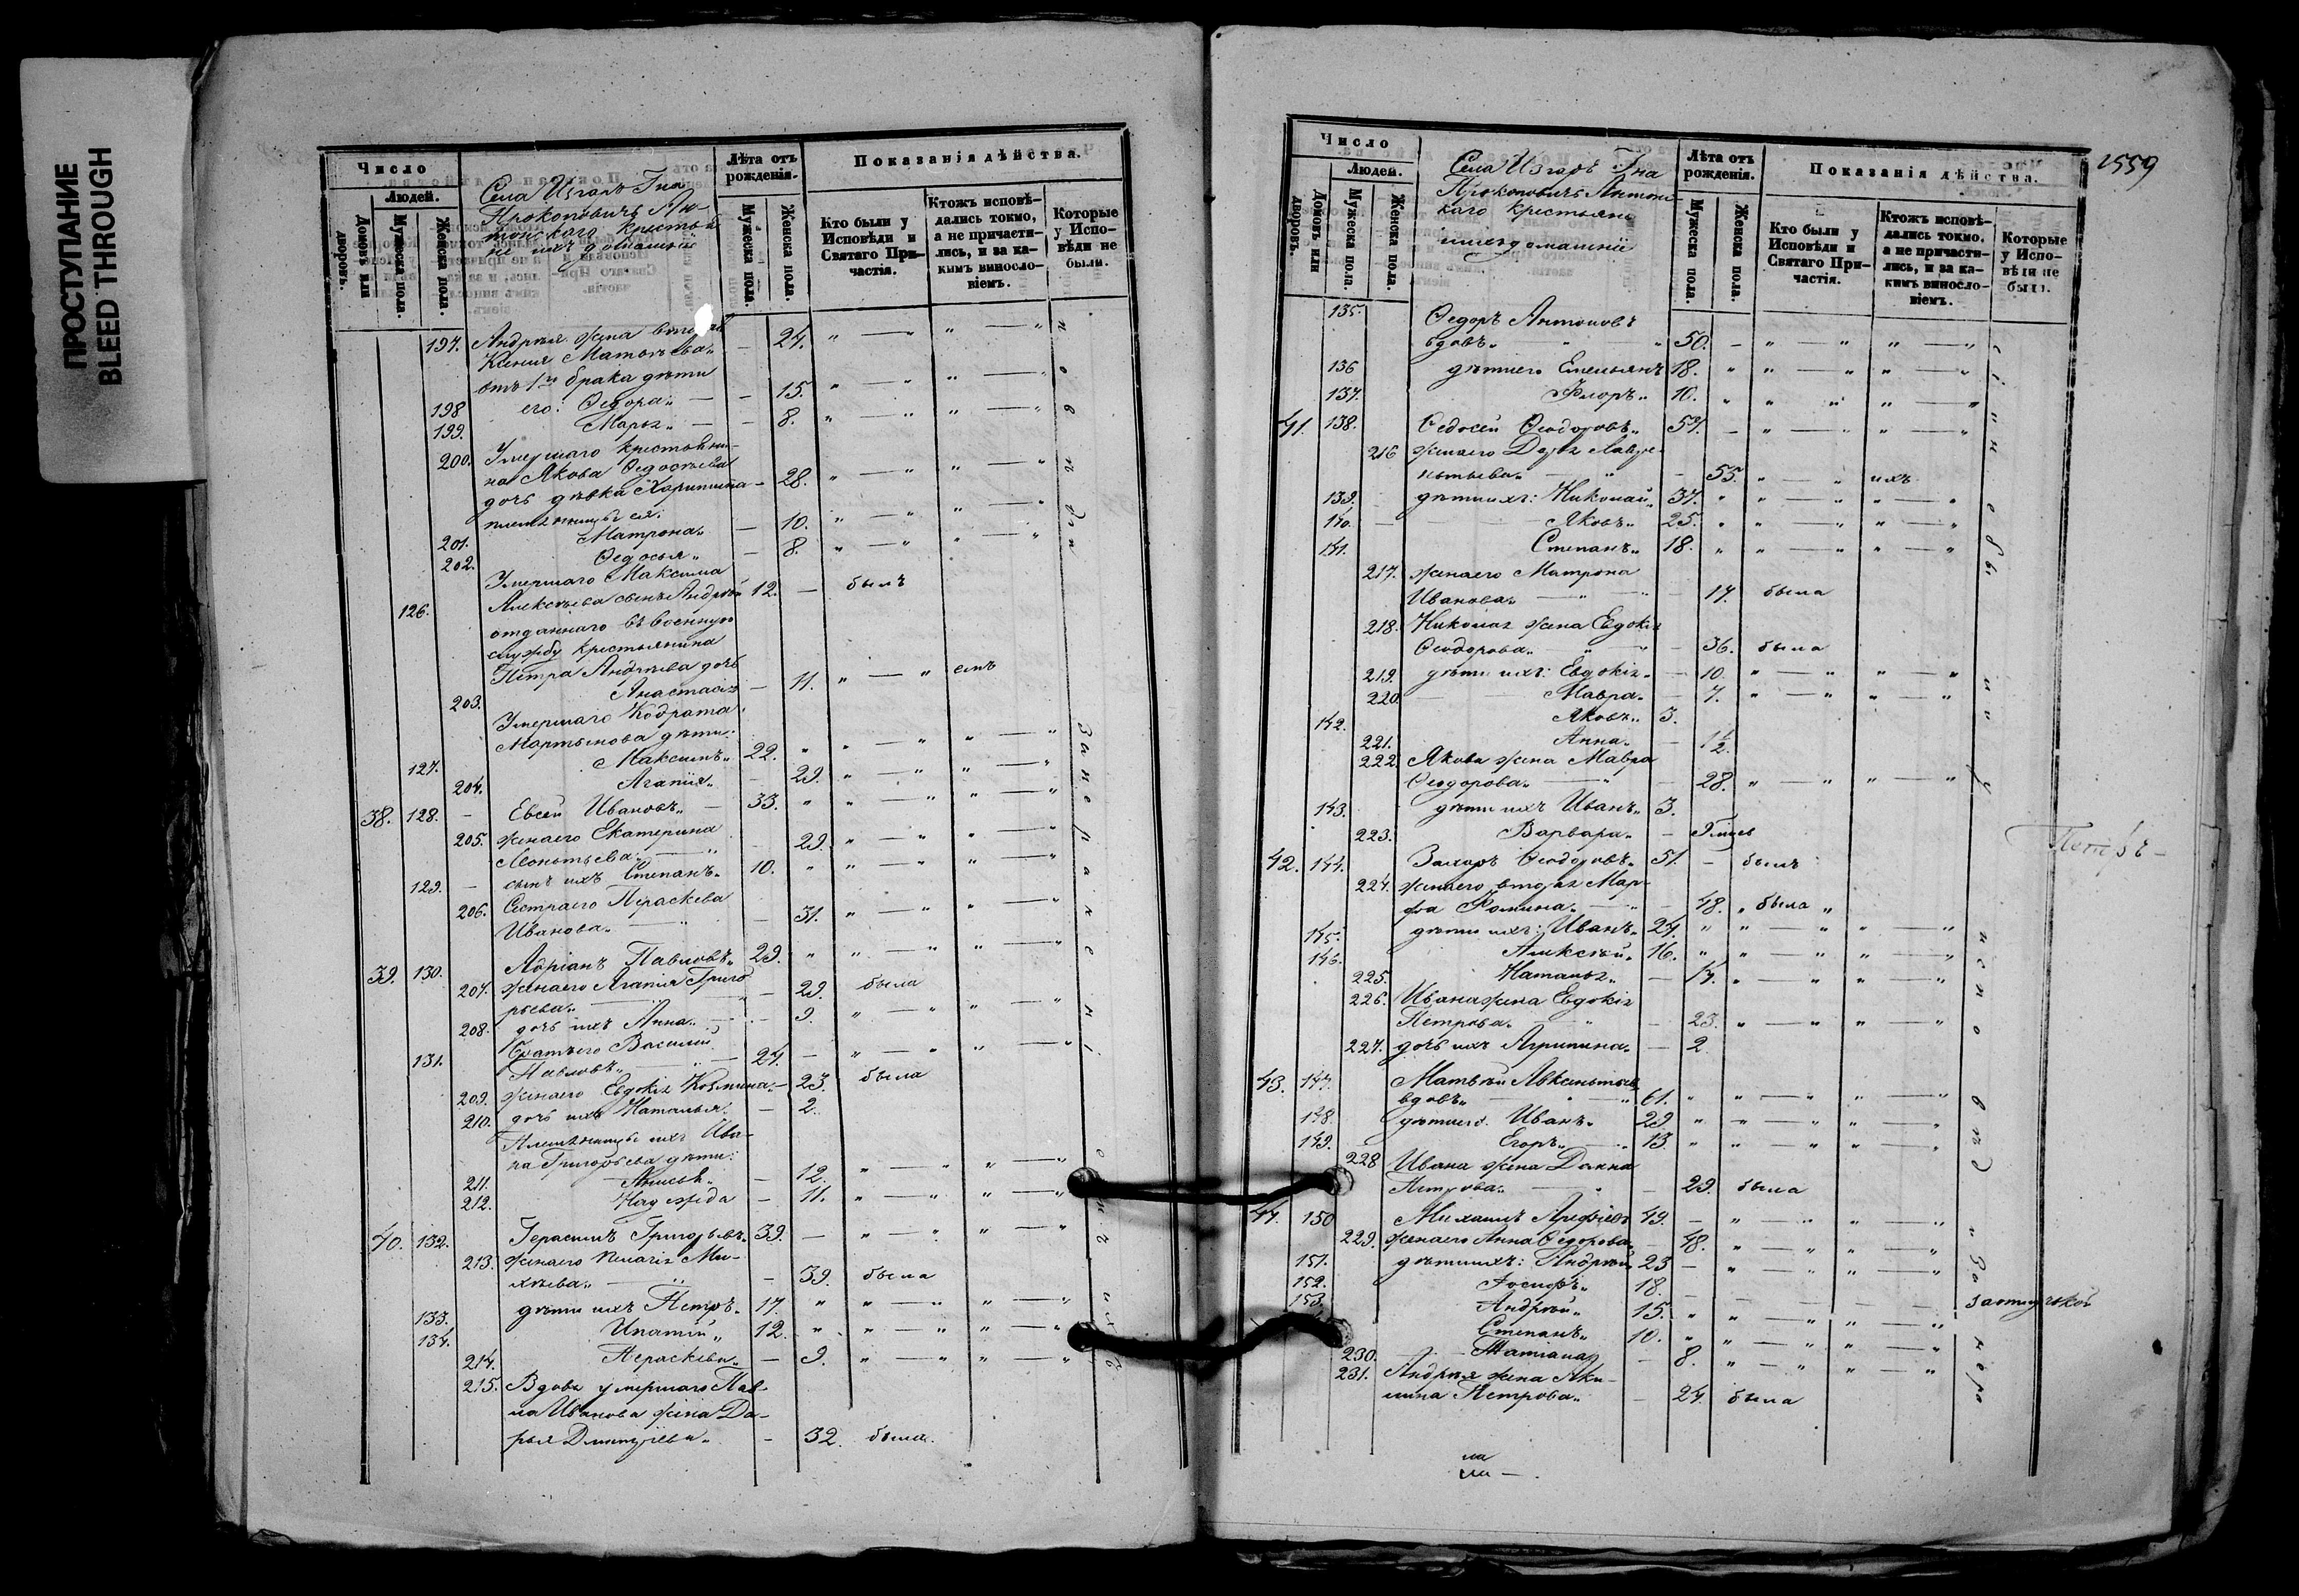 ПРОСТУПАНИЕ
BLEED THROUGH
Число
Людей.
Домовъ или дворовъ.
Мужеска пола.
Женска пола.
Села Изгаръ Гна
Прокоповичъ Ан-
тонскаго крестья
не ихъ домашніе
Лѣта отъ рожденія.
Мужеска пола.
Женска пола.
Показанія дѣйства.
Кто были у Исповѣди и Святаго Причастія.
Ктожъ исповѣдались токмо, а не причастились, и за какимъ винословіемъ.
Которые у Исповѣди не были.
197. Андрея жена вторая
Ксения Матвѣева „ — 24. „ — „ „ — „
отъ 1го брака дѣти
198 его: Ѳедора „ — — 15. „ — „ „ — „
199. Марья „ — — 8. „ — „ „ — „
200. Умершаго крестьяни-
на Якова Ѳедосѣева
дочь дѣвка Харитина — 28. „ — „ „ — „
племянницы ея:
201. Матрона „ — 10. „ — „ „ — „
202. Ѳедосья „ — 8. „ — „ „ — „
Умершаго Максима
126. Алексѣева сынъ Андрей 12. — былъ
отданнаго въ военную
службу крестьянина
Петра Андрѣева дочь
203. Анастасія — 11. „ — „
Умершаго Кодрата
Мартынова дѣти:
127. Максимъ „ 22. „ „ — „ „ — „
204. Агапія „ — 29. „ — „ „ — „
38. 128. — Евсей Ивановъ „ — 33. „ „ — „ „ — „
205. жена его Екатерина
Леонтьева „ — „ 29. „ — „ „ — „
129. — сынъ ихъ Степанъ „ 10. „ „ — „ „ — „
206. Сестра его Параскева
Иванова „ — „ — 31. „ — „ „ — „
39. 130. Адріанъ Павловъ „ 29. „ „ — „ „ — „
207. жена его Агапія Григо
рьева „ — „ — 29. была
208. дочь ихъ Анна „ — — 9. „ — „ „ — „
Братъ его Василій
131. Павловъ „ — „ — 27. — „ — „ „ — „
209. жена его Евдокія Козмина — 23. была
210. дочь ихъ Наталья „ — 2.
Племянницы ихъ Ива-
на Григорьева дѣти:
211. Анисья „ — 12. „ — „ „ — „
212. Надежда — 11. „ — „ „ — „
40. 132. Герасимъ Григорьевъ „ 39. — „ — „ „ — „
213. жена его Пелагія Ми-
хѣева „ — „ — 39. была
133. дѣти ихъ Петръ „ 17. „ „ — „ „ — „
134. Ипатій „ 12. „ „ — „ „ — „
214. Параскева „ — 9. „ — „ „ — „
215. Вдова умершаго Пав-
ла Иванова жена Да-
рья Дмитріева „ — 32. была.
За нераденіемъ
2559
Число
Людей.
Домовъ или дворовъ.
Мужеска пола.
Женска пола.
Села Изгаръ Гна
Прокоповичъ Антонс
каго крестьяне
ихъ домашніе
Лѣта отъ рожденія.
Мужеска пола.
Женска пола.
Показанія дѣйства.
Кто были у Исповѣди и Святаго Причастія.
Ктожъ исповѣдались токмо, а не причастились, и за какимъ винословіемъ.
Которые у Исповѣди не были.
135. Ѳедоръ Антоновъ
вдовъ „ „ „ 50. — „ — „ „ — „
136 дѣти его Емельянъ 18. „ „ — „ „ — „
137. Флоръ „ 10. „ „ — „ „ — „
41. 138. Ѳедосей Ѳеодоровъ „ 57. — „ — „ „ — „
216 жена его Дарья Лавре-
нтьева „ — „ — 55. „ — „
139. дѣти ихъ: Николай „ 37. „ „ — „ „ — „
140. — Яковъ „ 25. „ „ — „ „ — „
141. Степанъ „ 18. „ „ — „ „ — „
217. жена его Матрона
Иванова „ — „ — 17. была
218. Николая жена Евдокія
Ѳеодорова „ „ — 36. была
219. дѣти ихъ: Евдокія „ — 10. „ — „ „ — „
220. Мавра „ — 7. „ — „ „ — „
142. Яковъ „ 3.
221. Анна „ — 1½.
222. Якова жена Мавра
Ѳеодорова „ — „ — 28. „ — „ „ — „
143. дѣти ихъ Иванъ „ 3.
223. Варвара „ —
42. 144. Захаръ Ѳеодоровъ „ 51. — былъ
224. жена его вторая Мар-
фа Фомина „ — „ — 48. „ была „
145. дѣти ихъ: Иванъ „ 24. „ „ — „ „ — „
146. Алексѣй „ 16. „ „ — „ „ — „
225. Наталья „ — 14. „ — „ „ — „
226. Ивана жена Евдокія
Петрова „ — „ — 23. „ — „ „ — „
227. дочь ихъ Агрипина „ — 2.
43. 147. Матвѣй Авксентьевъ
вдовъ „ — „ — 61. „ „ — „ „ — „
148. дѣти его. Иванъ „ 29 „ „ — „ „ — „
149. Егоръ „ — „ 13 „ „ — „ „ — „
228 Ивана жена Домна
Петрова „ — „ — 29. была
44. 150 Михаилъ Арефіевъ 49. — „ — „ „ — „
229. жена его Анна Ѳедорова „ 48. „ — „ „ — „
151. дѣти ихъ: Андрей „ 23 — „ — „ „ — „
152. Іосифъ „ 18. —
153. Андрей „ 15. „ „ — „ „ — „
Степанъ „ 10. „ „ — „ „ — „
230. — Татіана „ — 8. „ — „ „ — „
231. Андрея жена Аку-
лина Петрова „ — 24. была